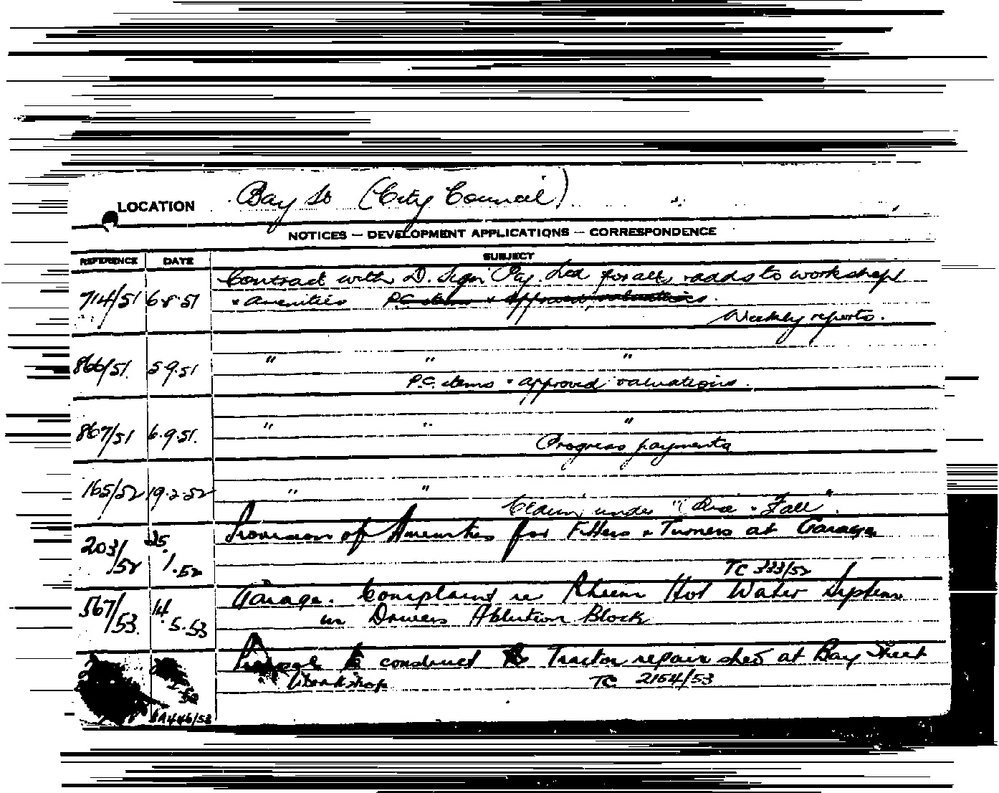 LOCATION Bay St (City Council)
NOTICES — DEVELOPMENT APPLICATIONS — CORRESPONDENCE
REFERENCE DATE SUBJECT
714/51 6-8-51 Contract with D. Pty. Ltd for alts, adds to workshops
+ amenities P.C. items + Approved valuations.
Weekly reports.
866/51. 5.9.51 " " "
P.C. items + approved valuations.
867/51 6.9.51. " " "
Progress payments
165/52 19.2.52 " "
Claim under "Rise + Fall".
203/52 25.1.52 Provision of Amenities for Fitters + Turners at Garage
TC 333/52
567/53. 14.5.53 Garage. Complaint re Rheem Hot Water System
in Drivers Ablution Block
to construct Tractor repair shed at Bay Street
Workshop TC 2154/53
A446/53